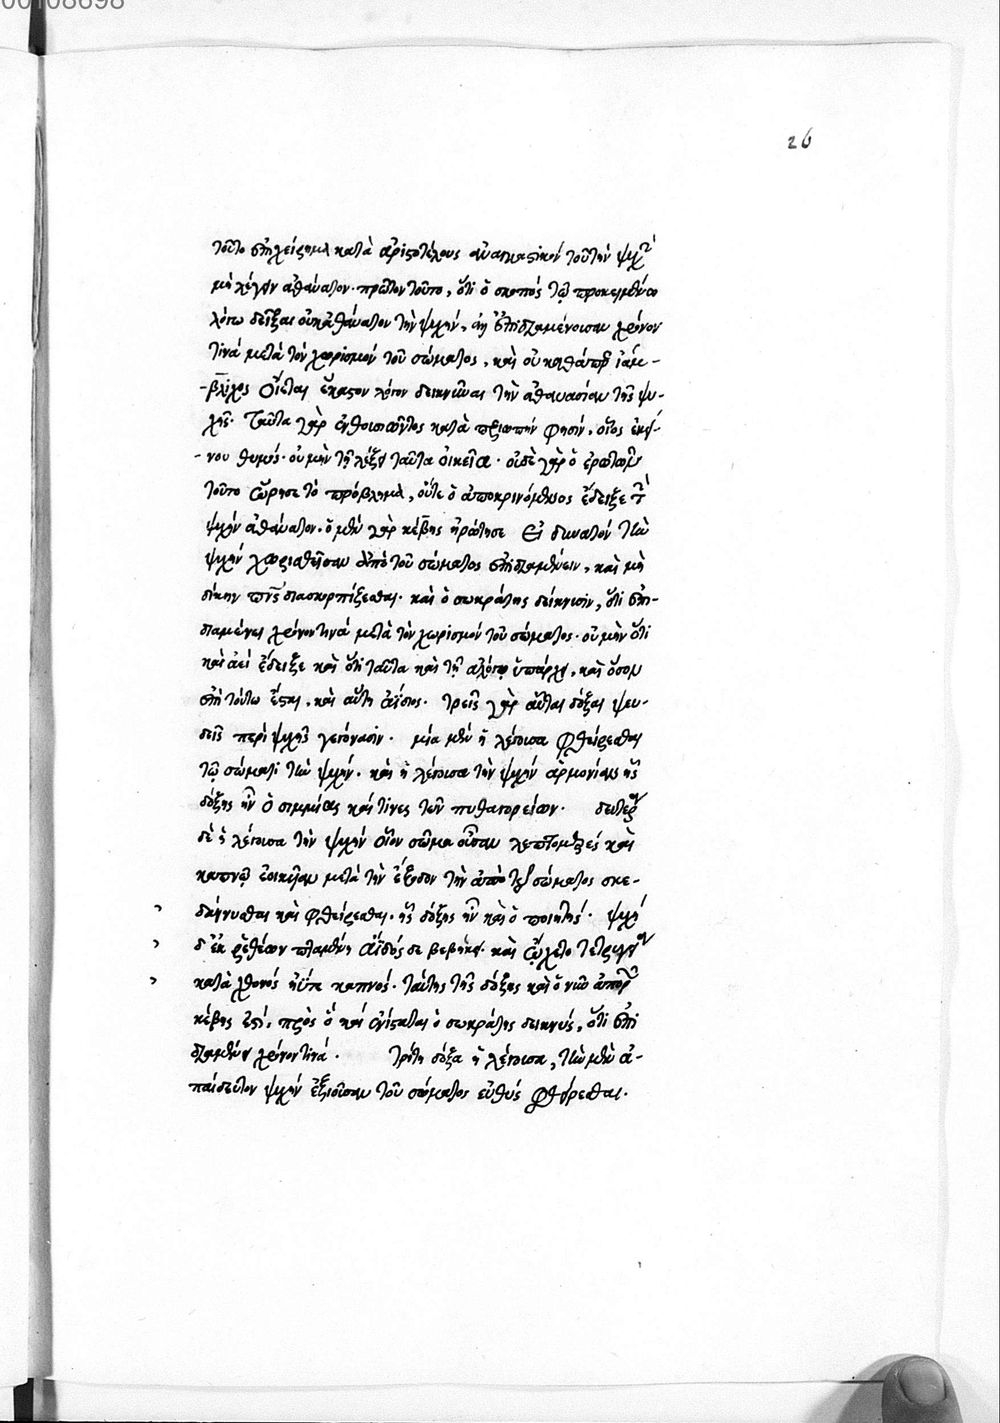 00108698
26
τοῦτο ἐπιχείρημα κατὰ ἀριστοτέλους ἀναγκαστικόν τοῦ τὴν ψυχὴν
μὴ λέγειν ἀθάνατον. πρῶτον τοῦτο, ὅτι ὁ σκοπός τῷ προκειμένῳ
λόγῳ δεῖξαι οὐκ ἀθάνατον τὴν ψυχήν, ἐπιδιαμένουσαν χρόνον
τινά μετά τὸν χωρισμόν τοῦ σώματος, καὶ οὐ καθάπερ ἰάμ-
-βλιχος οἴεται ἕκαστον λόγον δεικνῦναι τὴν ἀθανασίαν τῆς ψυ-
χῆς. ταῦτα γὰρ ἐνθουσιῶντος κατὰ φησίν, οἷος ἐκεί-
-νου θυμός. οὐ μὴν τῇ λέξει ταῦτα οἰκεῖα. οὐδὲ γὰρ ὁ ἐρωτῶν
τοῦτο ᾤρησε τὸ πρόβλημα, οὔτε ὁ ἀποκρινόμενος ἔδειξε τὴν
ψυχήν ἀθάνατον. ὁ μὲν γὰρ κέβης ἠρώτησε εἰ δυνατόν τὴν
ψυχήν χωρισθεῖσαν ἀπὸ τοῦ σώματος ἐπιδιαμένειν, καὶ μὴ
δίκην πνς διασκορπίζεσθαι. καὶ ὁ σωκράτης δείκνυσιν, ὅτι ἐπι-
διαμένει χρόνον τινά μετὰ τὸν χωρισμόν τοῦ σώματος. οὐ μὴν ὅτι
καὶ ἀεί ἔδειξε καὶ ὅτι ταῦτα καὶ τῇ ἀλόγῳ ὑπάρχει, καὶ ὅσον
ἐπὶ τούτῳ ἔσται, καὶ αὕτη ἀΐδιος. τρεῖς γὰρ αὗται δόξαι ψευ-
δεῖς περὶ ψυχῆς γεγόνασιν. μία μὲν ἡ λέγουσα φθείρεσθαι
τῷ σώματι τὴν ψυχήν. καὶ ἡ λέγουσα τὴν ψυχήν ἁρμονίαν ἧς
δόξης ἦν ὁ σιμμίας καί τινες τῶν πυθαγορείων. δευτέρα
δὲ ἡ λέγουσα τὴν ψυχήν οἷον σῶμα οὖσαν λεπτομερές καὶ
καπνῷ ἐοικυῖαν μετὰ τὴν ἔξοδον τὴν ἀπὸ τοῦ σώματος σκε-
δάννυσθαι καὶ φθείρεσθαι. ἧς δόξης ἦν καὶ ὁ ποιητής. ψυχή
δ' ἐκ ῥεθέων πταμένη ἄϊδός δε βεβήκει. καὶ ᾤχετο τετριγυῖα
κατὰ χθονός ἠΰτε καπνός. ταύτης τῆς δόξης καὶ ὁ νῦν ἀπορῶν
κέβης ἐστί, πρὸς ὅ καί ἐνίσταται ὁ σωκράτης δεικνύς, ὅτι ἐπι
διαμένει χρόνον τινά. τρίτη δόξα ἡ λέγουσα, τὴν μὲν ἀ-
παίδευτον ψυχήν ἐξιοῦσαν τοῦ σώματος εὐθύς φθείρεσθαι.